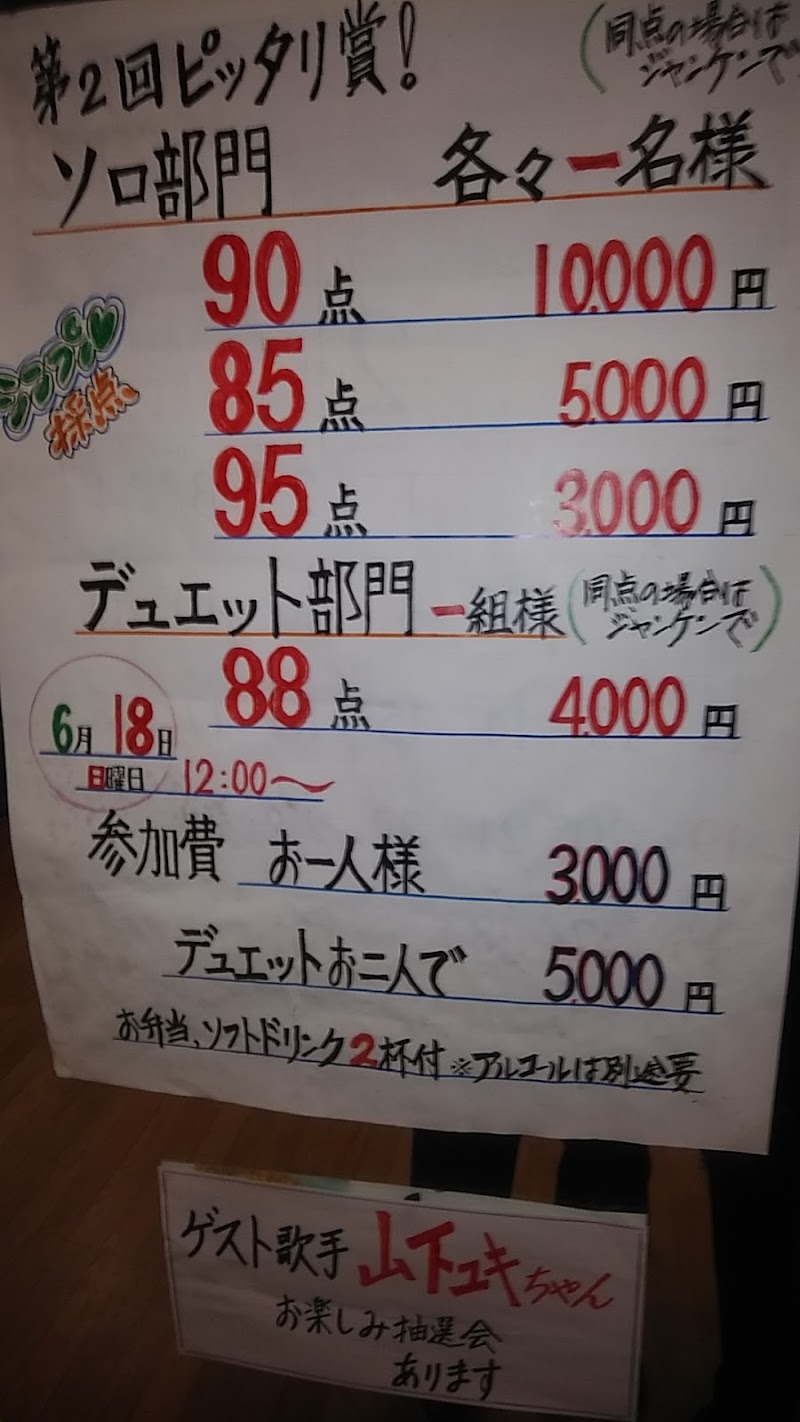 第2回ピッタリ賞！
(同点の場合は
ジャンケンで
ソロ部門 各々一名様
90点 10,000円
シンプル♥
採点
85点 5,000円
95点 3,000円
デュエット部門 一組様
(同点の場合は
ジャンケンで)
88点 4,000円
6月18日
日曜日 12:00〜
参加費 お一人様 3,000円
デュエットお二人で 5,000円
お弁当、ソフトドリンク2杯付 ※アルコールは別途必要
ゲスト歌手 山下ユキちゃん
お楽しみ抽選会
あります